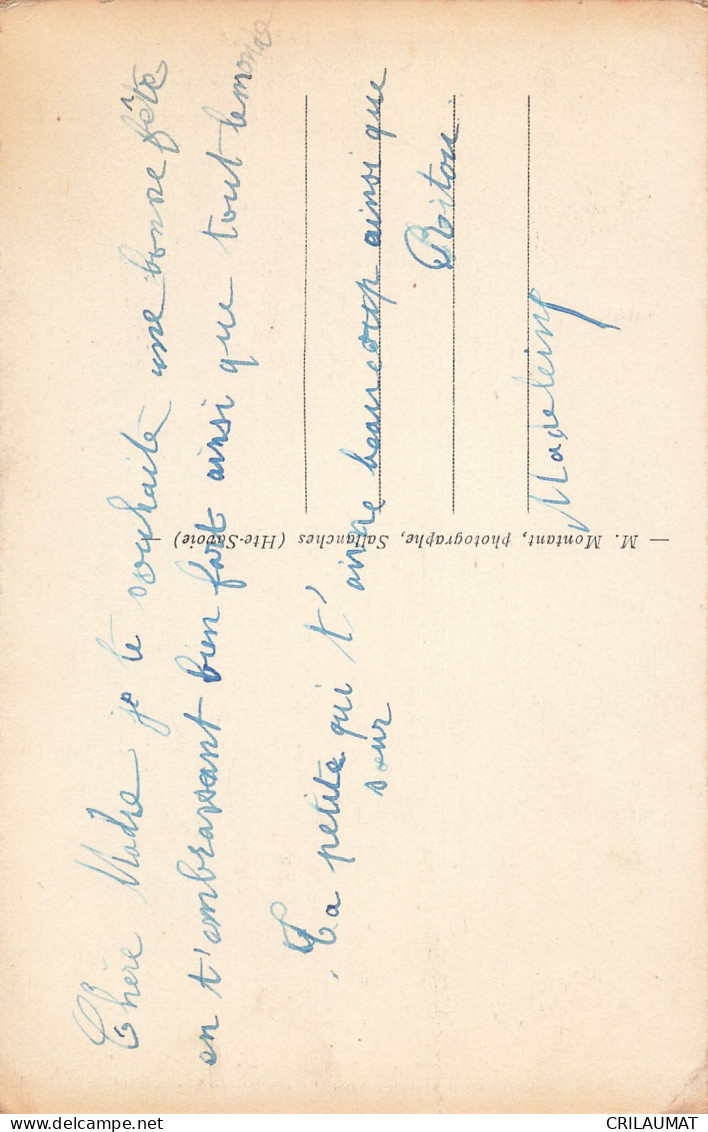 Chère Madre je te souhaite une bonne fête
en t'ambrassant bien fort ainsi que tout le monde
Ta petite qui t'aime beaucoup ainsi que
sœur
Boitou
Madeleine
— M. Montant, photographe, Sallanches (Hte-Savoie) —
CRILAUMAT